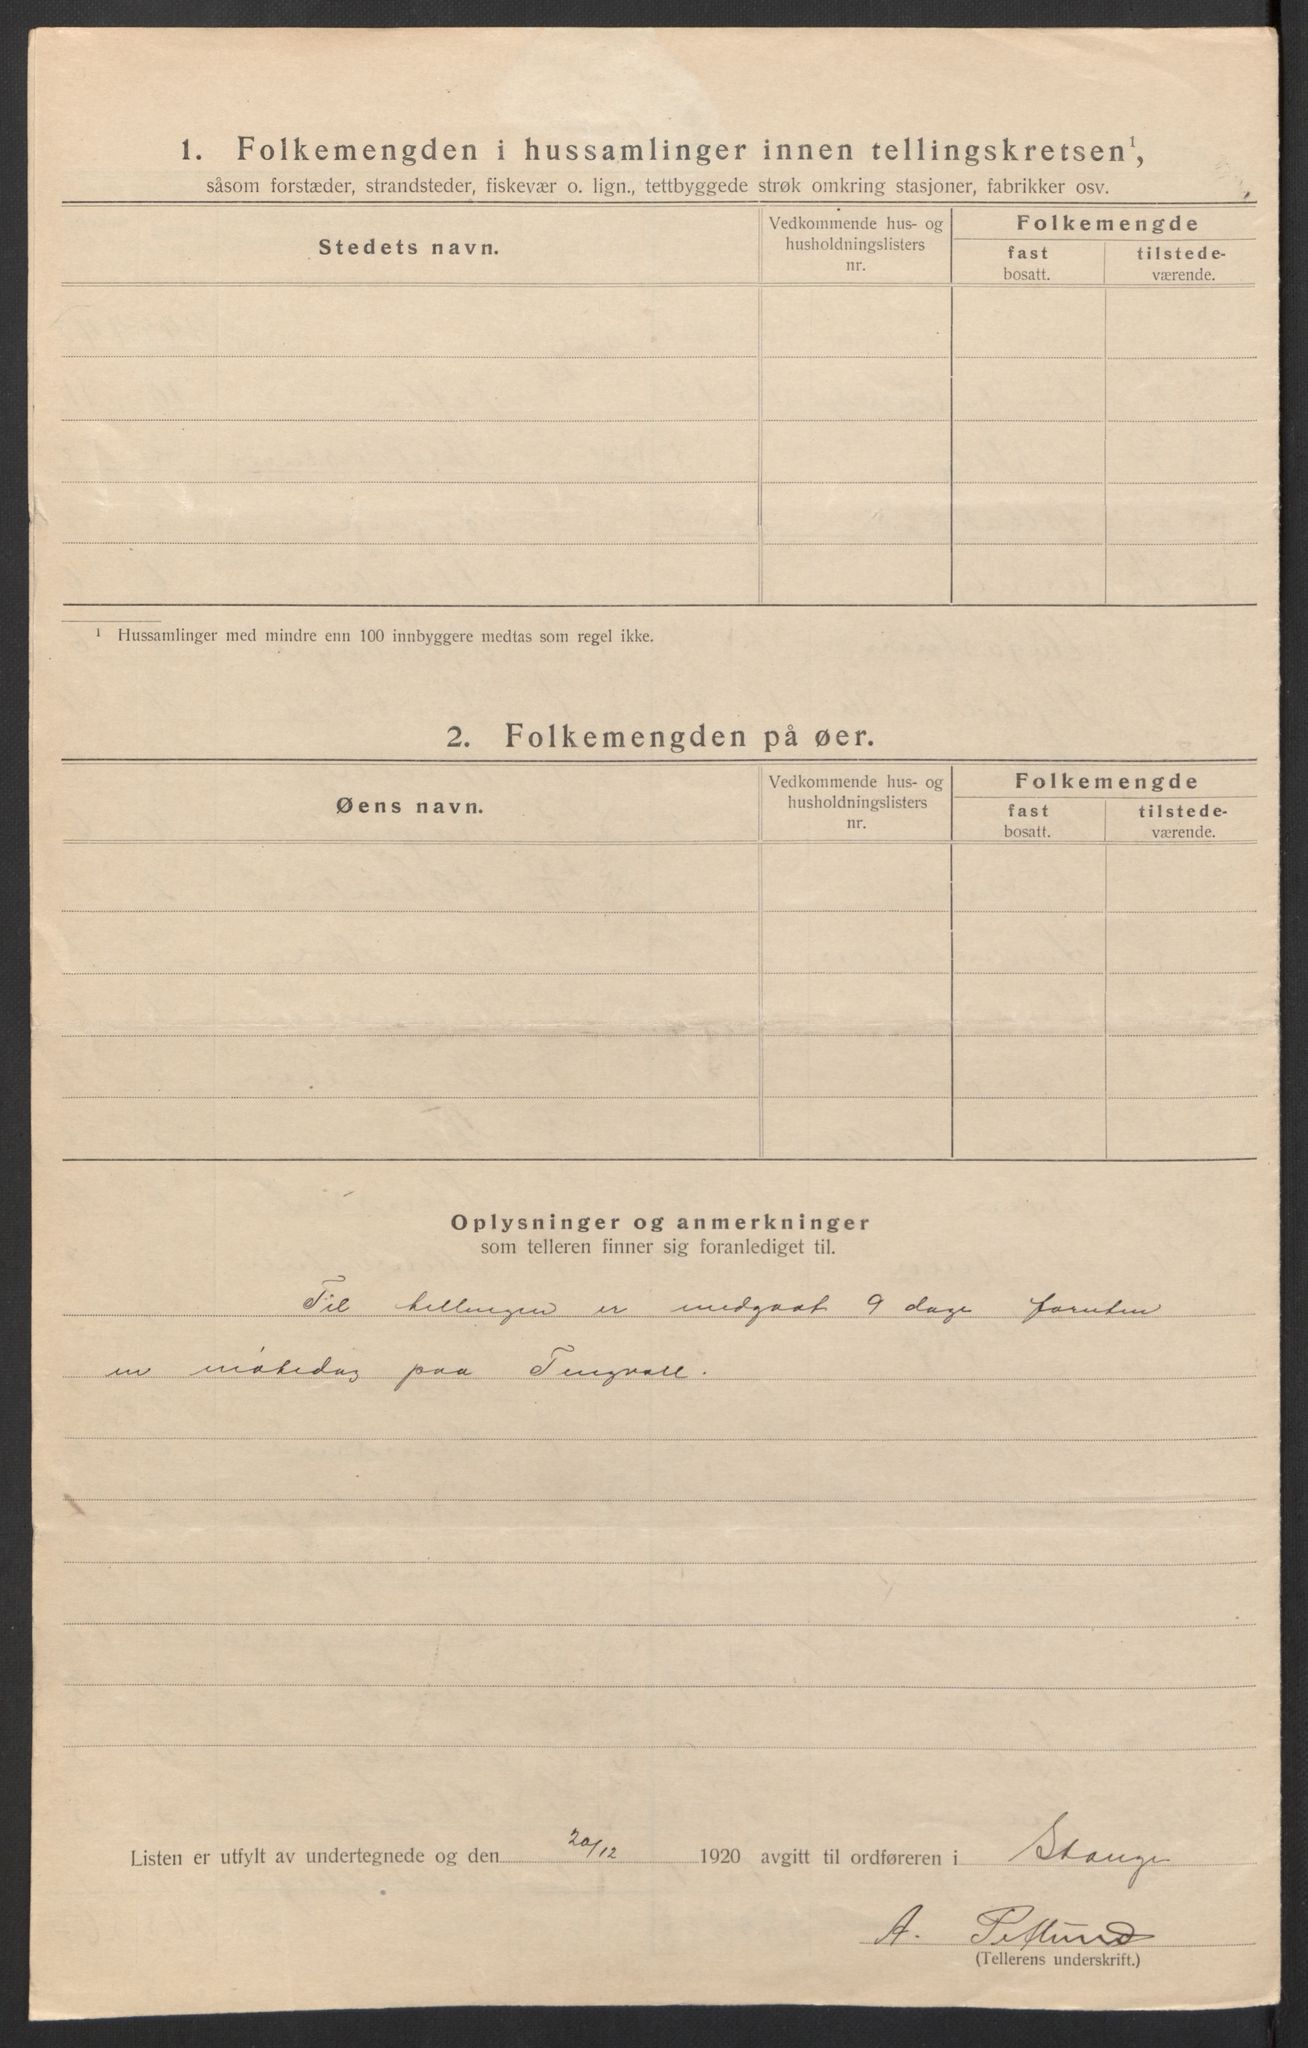 1. Folkemengden i hussamlinger innen tellingskretsen¹,
såsom forstæder, strandsteder, fiskevær o. lign., tettbyggede strøk omkring stasjoner, fabrikker osv.
Stedets navn.
Vedkommende hus- og husholdningslisters nr.
Folkemengde
fast bosatt.
tilstedeværende.
¹ Hussamlinger med mindre enn 100 innbyggere medtas som regel ikke.
2. Folkemengden på øer.
Øens navn.
Vedkommende hus- og husholdningslisters nr.
Folkemengde
fast bosatt.
tilstedeværende.
Oplysninger og anmerkninger
som telleren finner sig foranlediget til.
Til tellingen er medgaat 9 dage foruten
en møtedag paa Tingvall.
Listen er utfylt av undertegnede og den 20/12 1920 avgitt til ordføreren i Stange
A.
(Tellerens underskrift.)